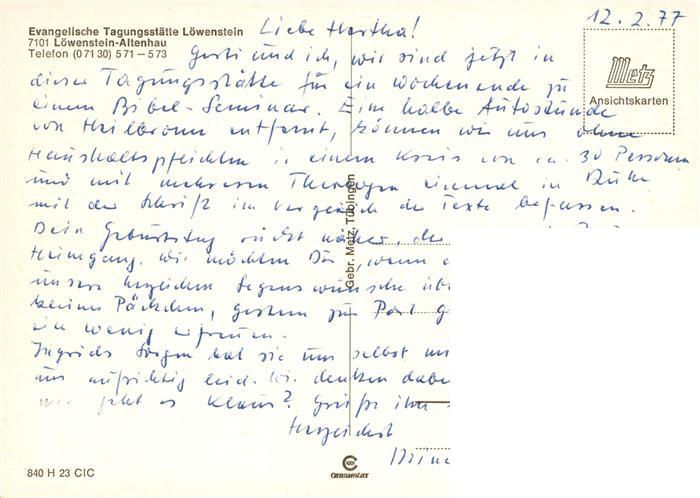 12.2.77
Evangelische Tagungsstätte Löwenstein
7101 Löwenstein-Altenhau
Telefon (07130) 571–573
Metz
Ansichtskarten
Liebe Hertha!
Gerti und ich, wir sind jetzt in
dieser Tagungsstätte für ein Wochenende zu
einem Bibel-Seminar. Eine halbe Autostunde
von Heilbronn entfernt, können wir uns ohne
Haushaltspflichten in einem Kreis von ca. 30 Personen
und mit mehreren Theologen einmal in Ruhe
mit der Schrift im Vergleich der Texte befassen.
Dein Geburtstag rückt näher, der
Heimgang. Wir möchten Dir, wenn
unsere herzlichen Segenswünsche
kleine Päckchen, gestern zur Post
ein wenig erfreuen.
Ingrids Sorgen hat sie uns selbst
uns aufrichtig leid. Wir denken
wie geht es Klaus? Grüße ihn
Herzlichst
Gebr. Metz, Tübingen
CHROMOLUX
840 H 23 CIC